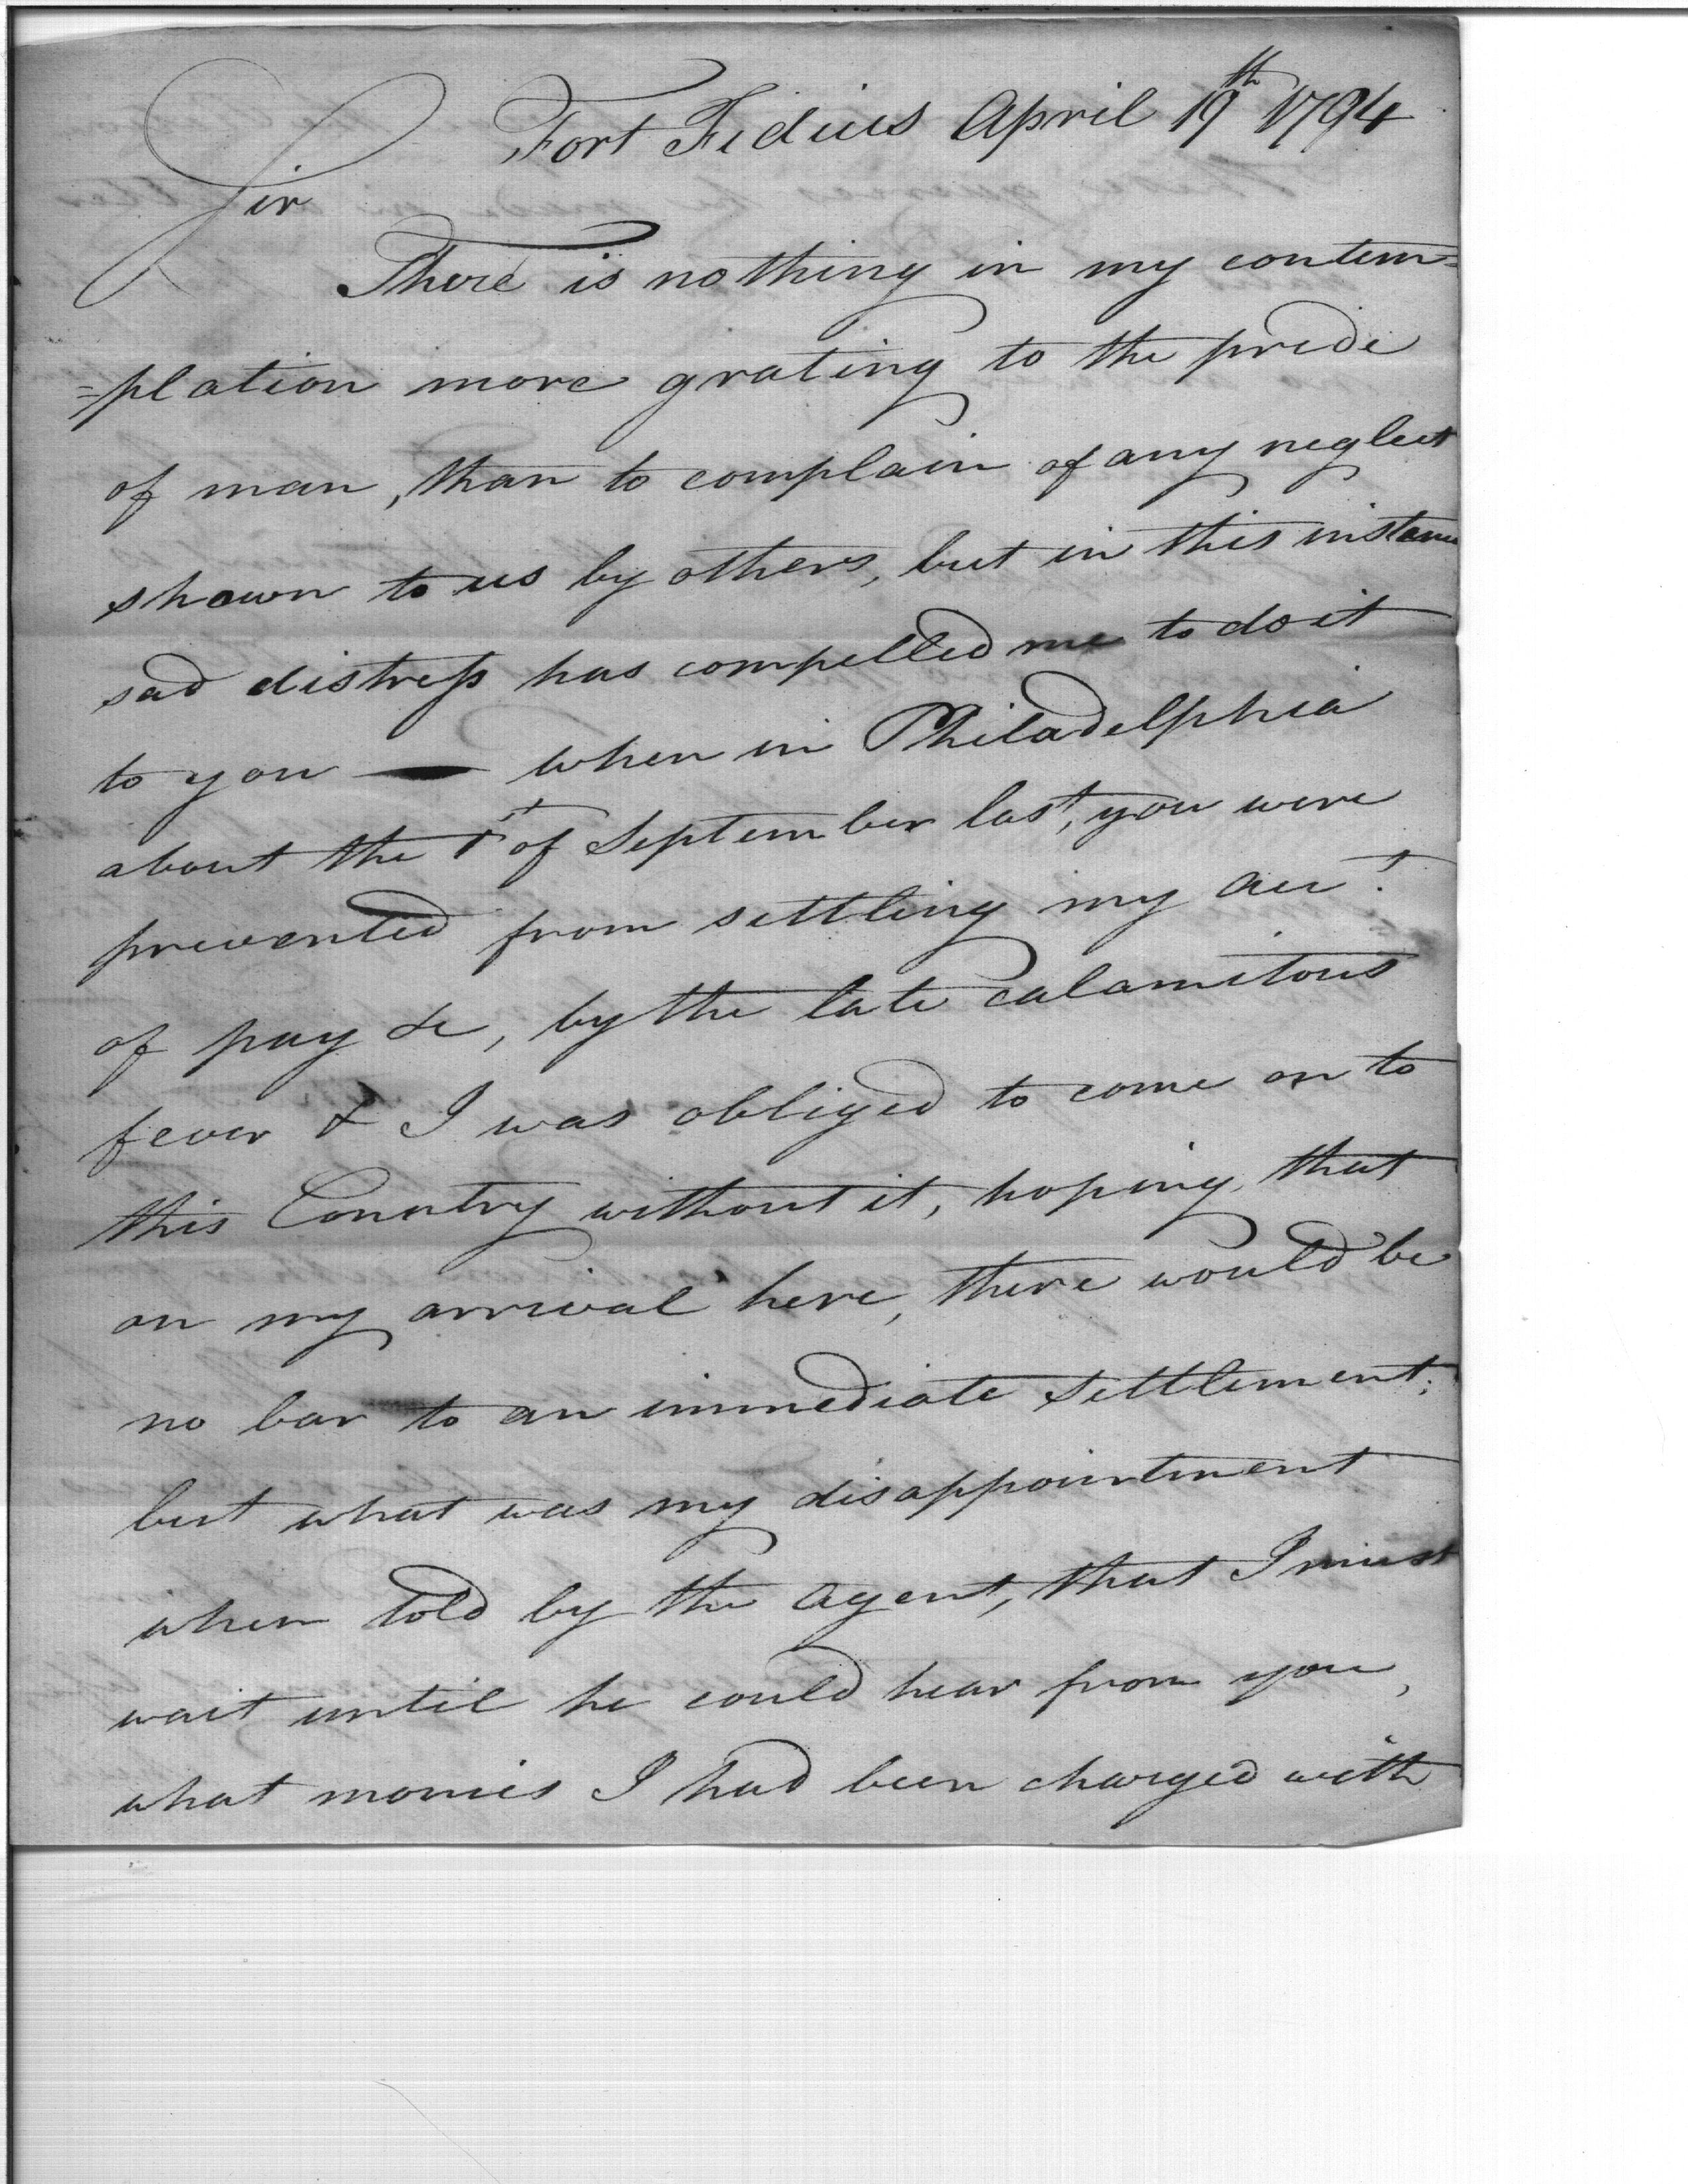 Fort Fidius April 19th 1794
Sir
There is nothing in my contem=
=plation more grating to the pride
of man, than to complain of any neglect
shown to us by others, but in this instance
sad distress has compelled me to do it
to you — when in Philadelphia
about the 1st of September last, you were
prevented from settling my acct.
of pay &c, by the late calamitous
fever & I was obliged to come on to
this Country without it, hoping, that
on my arrival here, there would be
no bar to an immediate settlement;
but what was my disappointment
when told by the Agent, that I must
wait until he could hear from you,
what monies I had been charged with